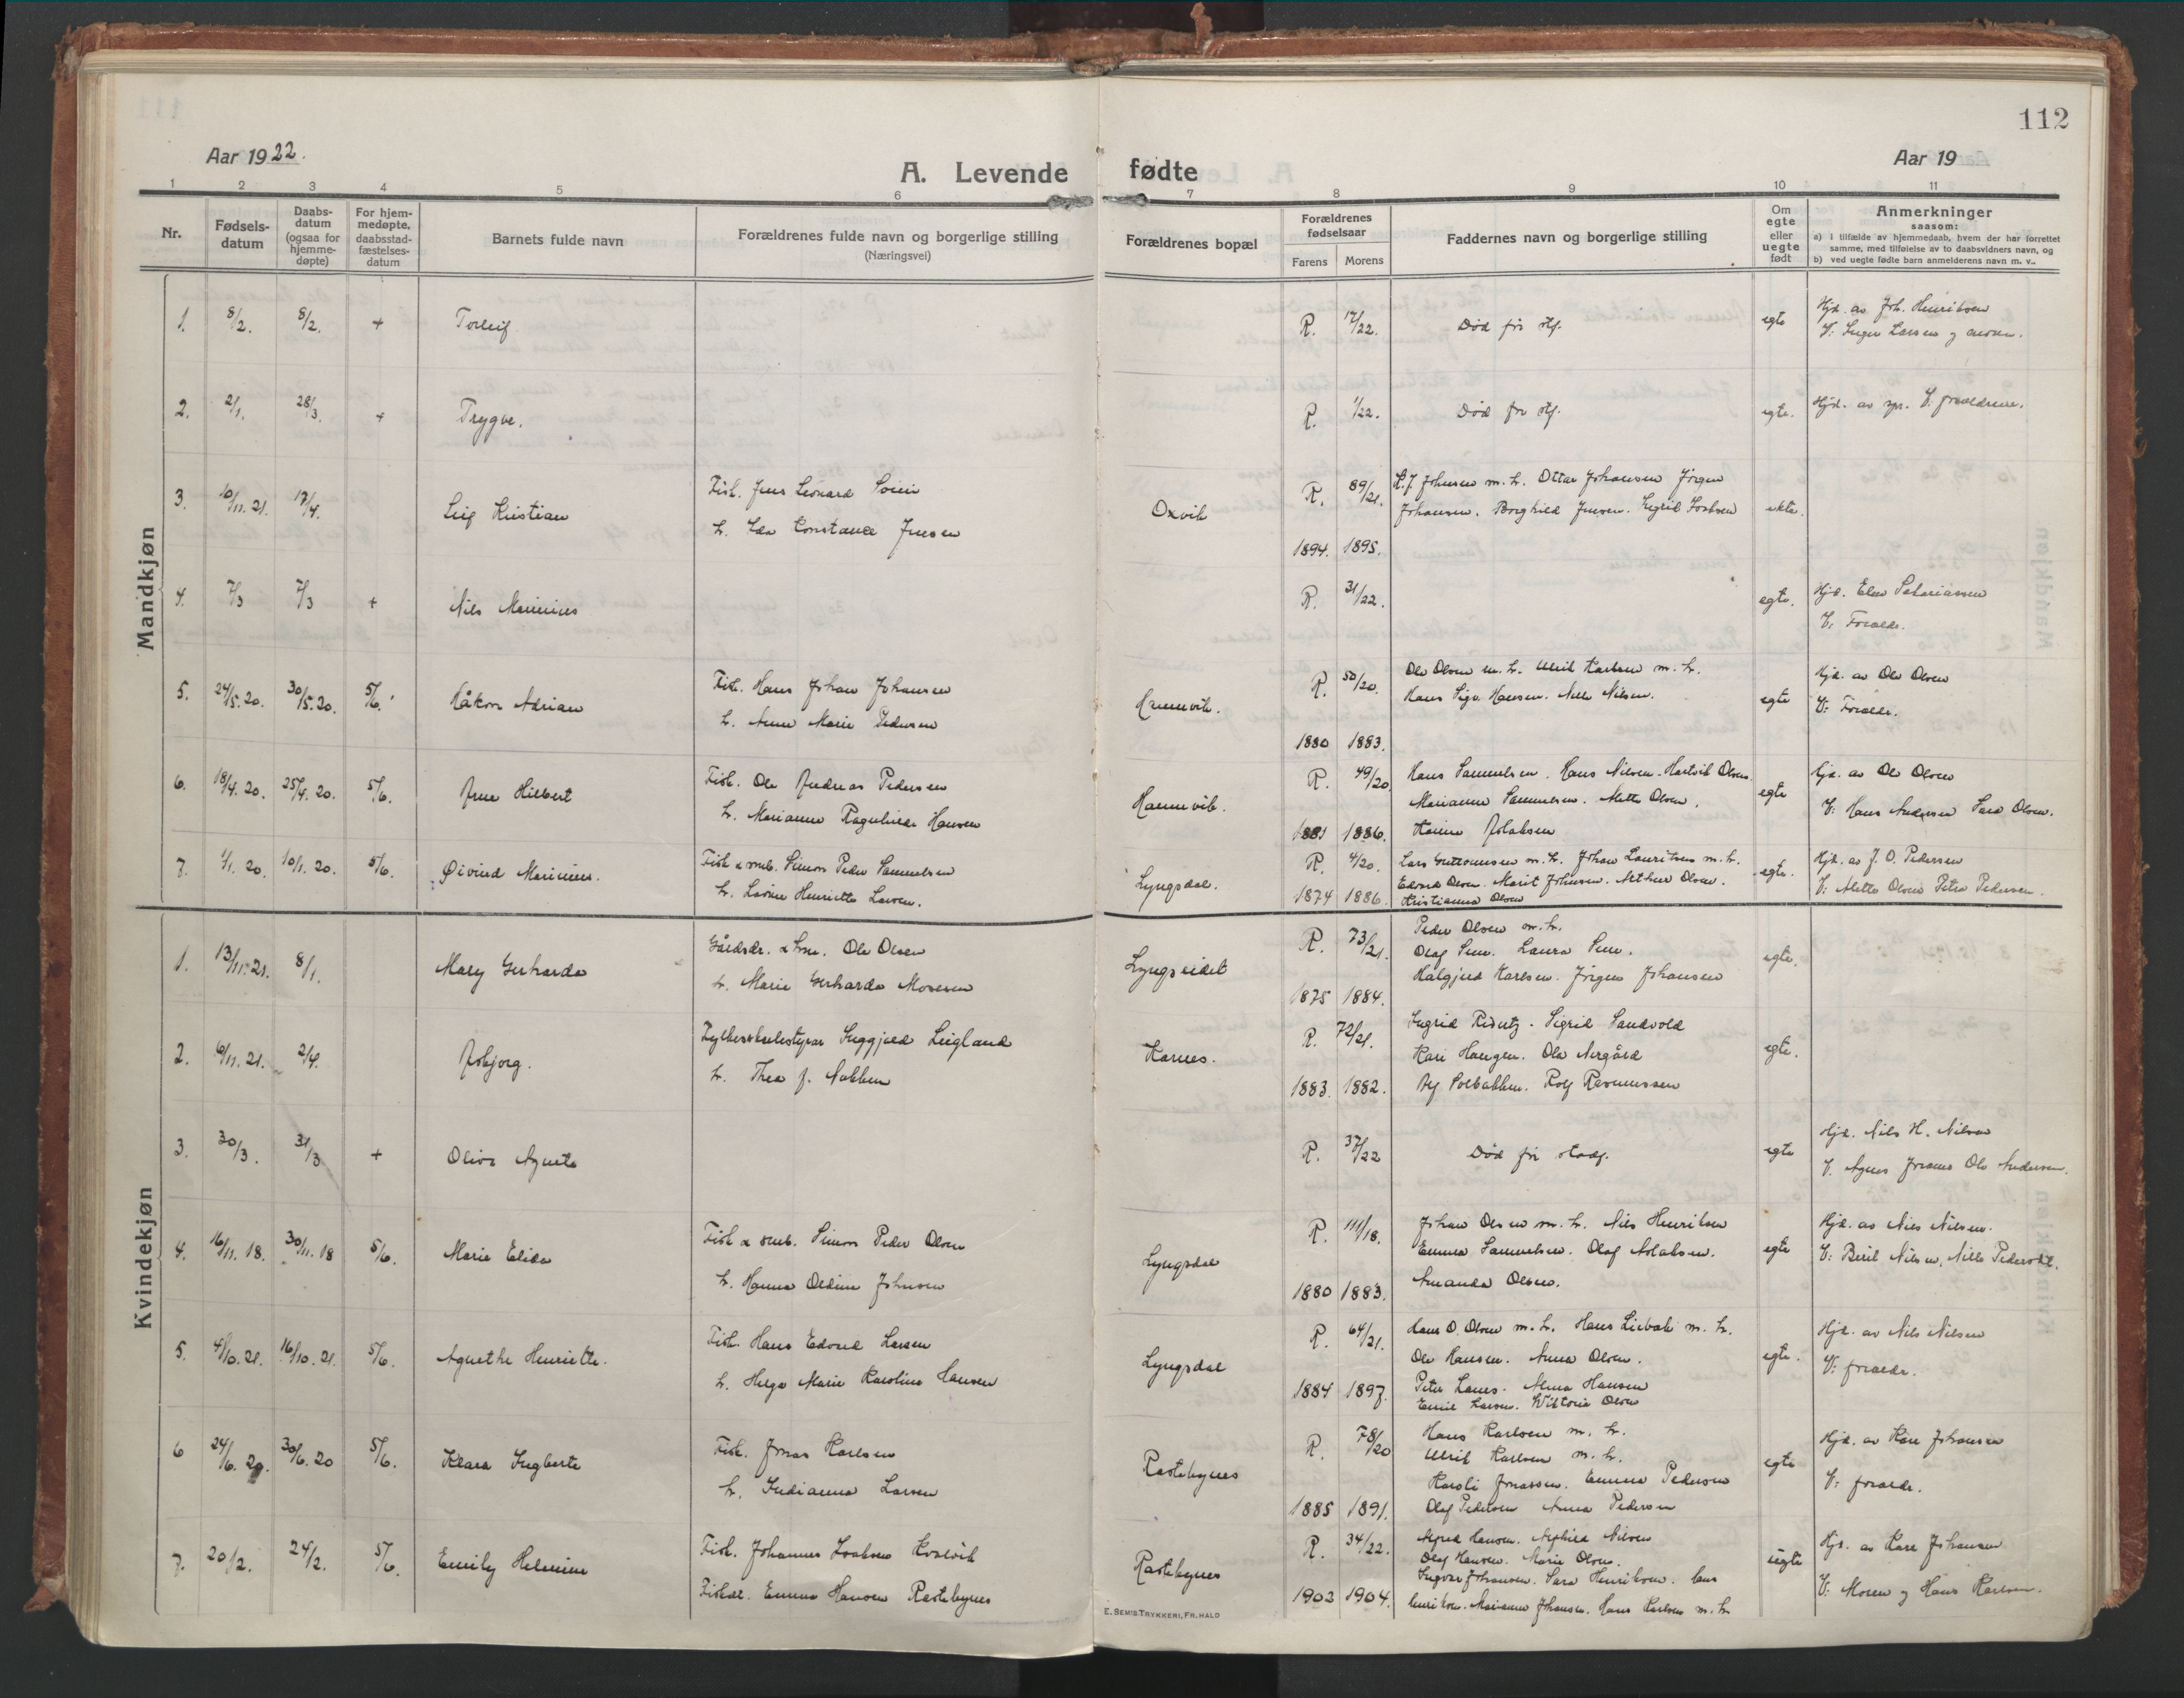 112
Aar 1922.
A. Levende fødte
Aar 19
1 2 3 4 5 6 7 8 9 10 11
Nr.
Fødsels-
datum
Daabs-
datum
(ogsaa for
hjemme-
døpte)
For hjem-
medøpte,
daabsstad-
fæstelses-
datum
Barnets fulde navn
Forældrenes fulde navn og borgerlige stilling
(Næringsvei)
Forældrenes bopæl
Forældrenes
fødselsaar
Farens Morens
Faddernes navn og borgerlige stilling
Om
egte
eller
uegte
født
Anmerkninger
saasom:
a) i tilfælde av hjemmedaab, hvem der har forrettet
samme, med tilføielse av to daabsvidners navn, og
b) ved uegte fødte barn anmelderens navn m. v..
Mandkjøn
1. 8/2. 8/2. + Torleif R. 17/22. Død før stf. egte Hjd. av Joh. Henriksen
V: Inger Larsen og moren.
2. 2/1. 28/3. + Trygve. R. 1/22. Død før stf. egte. Hjd. av spr. V. forældrene.
3. 10/11. 21. 17/4. Leif Kristian Fisk. Jens Leonard
h. Ida Constance Jensen Oxvik R. 89/21. Johnsen m. h. Ottar Johansen Jørgen
Johansen. Borghild Jensen. Sigrid ekte.
1894. 1895.
4. 7/3 7/3 + Nils Marinius R. 31/22. egte. Hjd. Elen Sakariassen
V: Forældr.
5. 24/5. 20. 30/5. 20. 5/6. Håkon Adrian Fisk. Hans Johan Johansen
h. Anne Marie Pedersen Hamnvik. R. 50/20. Ole Olsen m. h. Ulrik Karlsen m. h.
Hans Sigv. Hansen. Nelle Nilsen. egte Hjd. av Ole Olsen
V: Forældr.
1880 1883.
6. 18/4. 20. 25/4. 20. 5/6. Jens Hilbert Fisk. Ole Andreas Pedersen
h. Marianne Ragnhilda Hansen Hamnvik. R. 49/20. Hans Samuelsen. Hans Nilsen. Hartvik Olsen.
Marianne Samuelsen. Mette Olsen. egte Hjd. av Ole Olsen
V: Hans Andersen Sara Olsen.
1881 1886. Jakobsen
7. 4/1. 20. 10/1. 20. 5/6. Øivind Marinius. Fisk & smb. Simon Peder Samuelsen
h. Lovise Henriette Larsen. Lyngsdal. R. 4/20. Lars Guttormsen m. h. Johan Lauritsen m. h.
Edvard Olsen. Marit Johnsen. Arthur Olsen. egte. Hjd. av J. O. Pedersen
V: Mette Olsen Petra Pedersen.
1874 1886. Kristianna Olsen
Kvindekjøn
1. 13/11. 21. 8/1. Mary Gerharda Gårdsbr. & Ole Olsen
h. Marie Gerharda Monsen Lyngseidet R. 73/21. Peder Olsen m. h.
Olaf Laura
Halgjerd Karlsen. Jørgen Johansen egte.
1875 1884.
2. 6/11. 21. 2/4. Asbjørg. Fylkesskulestyrar Inggjald Leigland
h. Thea J. Nakken Karnes. R. 72/21. Ingrid Sigrid Sandvold
Kari Haugen. Ola Nergård egte.
1883. 1882. Solbakken. Rolf Rasmussen
3. 30/3. 31/3 + Oliva Agnete R. 37/22 Død før stadf. egte Hjd. Nils H. Nilsen
V. Agnes Ole Andersen.
4. 16/11. 18. 30/11. 18 5/6. Marie Elida Fisk & smb. Simon Peder Olsen
h. Hanna Oldine Johnsen Lyngsdal R. 111/18. Johan Olsen m. h. Nils Henriksen
Emma Samuelsen. Olaf egte Hjd. av Nils Nilsen.
V: Beret Nilsen, Nille
1880 1883. Amanda Olsen.
5. 4/10. 21. 16/10. 21. 5/6. Agnethe Henriette. Fisk. Hans Edvard Larsen
h. Helga Marie Karoline Hansen Lyngsdal R. 64/21. Hans O. Olsen m. h. Hans m. h.
Ole Hansen. Anna Olsen. egte. Hjd. av Nils Nilsen
V: forældr.
1884 1897. Peter Alma Hansen
Emil Larsen. Viktoria Olsen
6 24/6. 20. 30/6. 20 5/6. Klara Ingberte Fisk. Jonas Karlsen
h. Indianna Larsen Rastebynes R. 78/20 Hans Karlsen m. h.
Ulrik Karlsen m. h.
Karoli Jonassen. Emma Pedersen egte Hjd. av Kåre Johansen
V: forældr.
1885 1891. Olaf Pedersen Anna Pedersen
7. 20/2. 24/2. 5/6. Emily Helmine Fisk. Johannes Isaksen Kvalvik
Fiskar. Emma Hansen Rastebynes Rastebynes R. 34/22. Alfred Hansen. Nilsen
Olaf Hansen. Marie Olsen.
Ingvar Johansen. Sara Henriksen. uegte Hjd. av Kåre Johansen
V: Moren og Hans Karlsen.
1902 1904. Henriksen. Marianne Johansen. Hans Karlsen m. h.
E. SEM'S TRYKKERI, FR. HALD